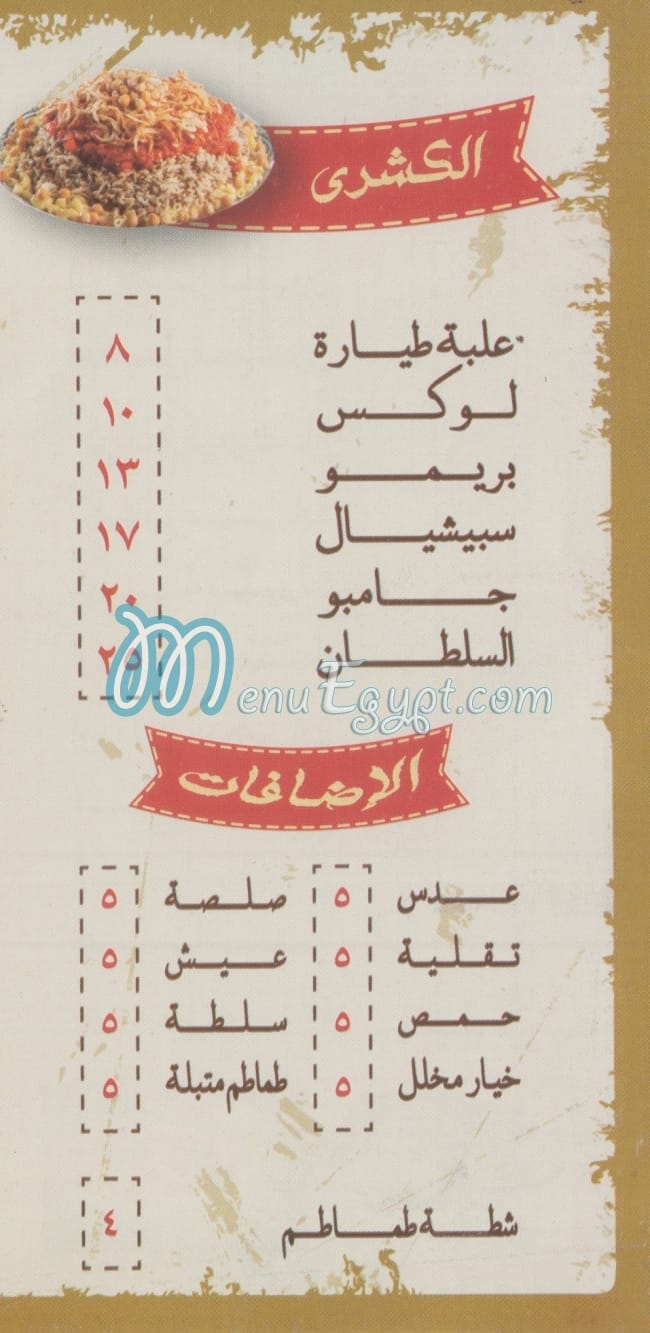 الكشرى
علبة طيارة ٨
لوكس ١٠
بريمو ١٣
سبيشيال ١٧
جامبو ٢٠
السلطان ٢٥
MenuEgypt.com
الإضافات
عدس ٥ صلصة ٥
تقلية ٥ عيش ٥
حمص ٥ سلطة ٥
خيار مخلل ٥ طماطم متبلة ٥
شطة طماطم ٤